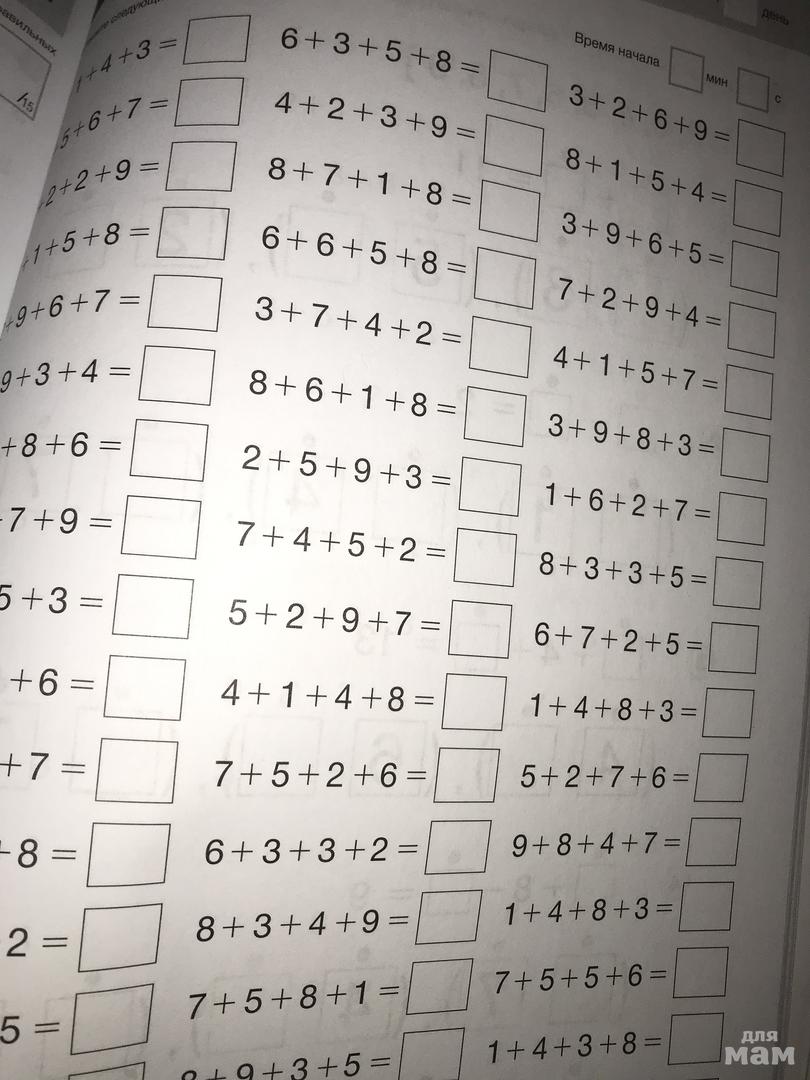 день
Время начала мин с
/15
+4+3 =
5+6+7 =
2+2+9 =
+1+5+8 =
+9+6+7 =
9+3+4 =
+8+6 =
7+9 =
5+3 =
+6 =
+7 =
8 =
2 =
5 =
6+3+5+8 =
4+2+3+9 =
8+7+1+8 =
6+6+5+8 =
3+7+4+2 =
8+6+1+8 =
2+5+9+3 =
7+4+5+2 =
5+2+9+7 =
4+1+4+8 =
7+5+2+6 =
6+3+3+2 =
8+3+4+9 =
7+5+8+1 =
8+9+3+5 =
3+2+6+9 =
8+1+5+4 =
3+9+6+5 =
7+2+9+4 =
4+1+5+7 =
3+9+8+3 =
1+6+2+7 =
8+3+3+5 =
6+7+2+5 =
1+4+8+3 =
5+2+7+6 =
9+8+4+7 =
1+4+8+3 =
7+5+5+6 =
1+4+3+8 =
для
мам